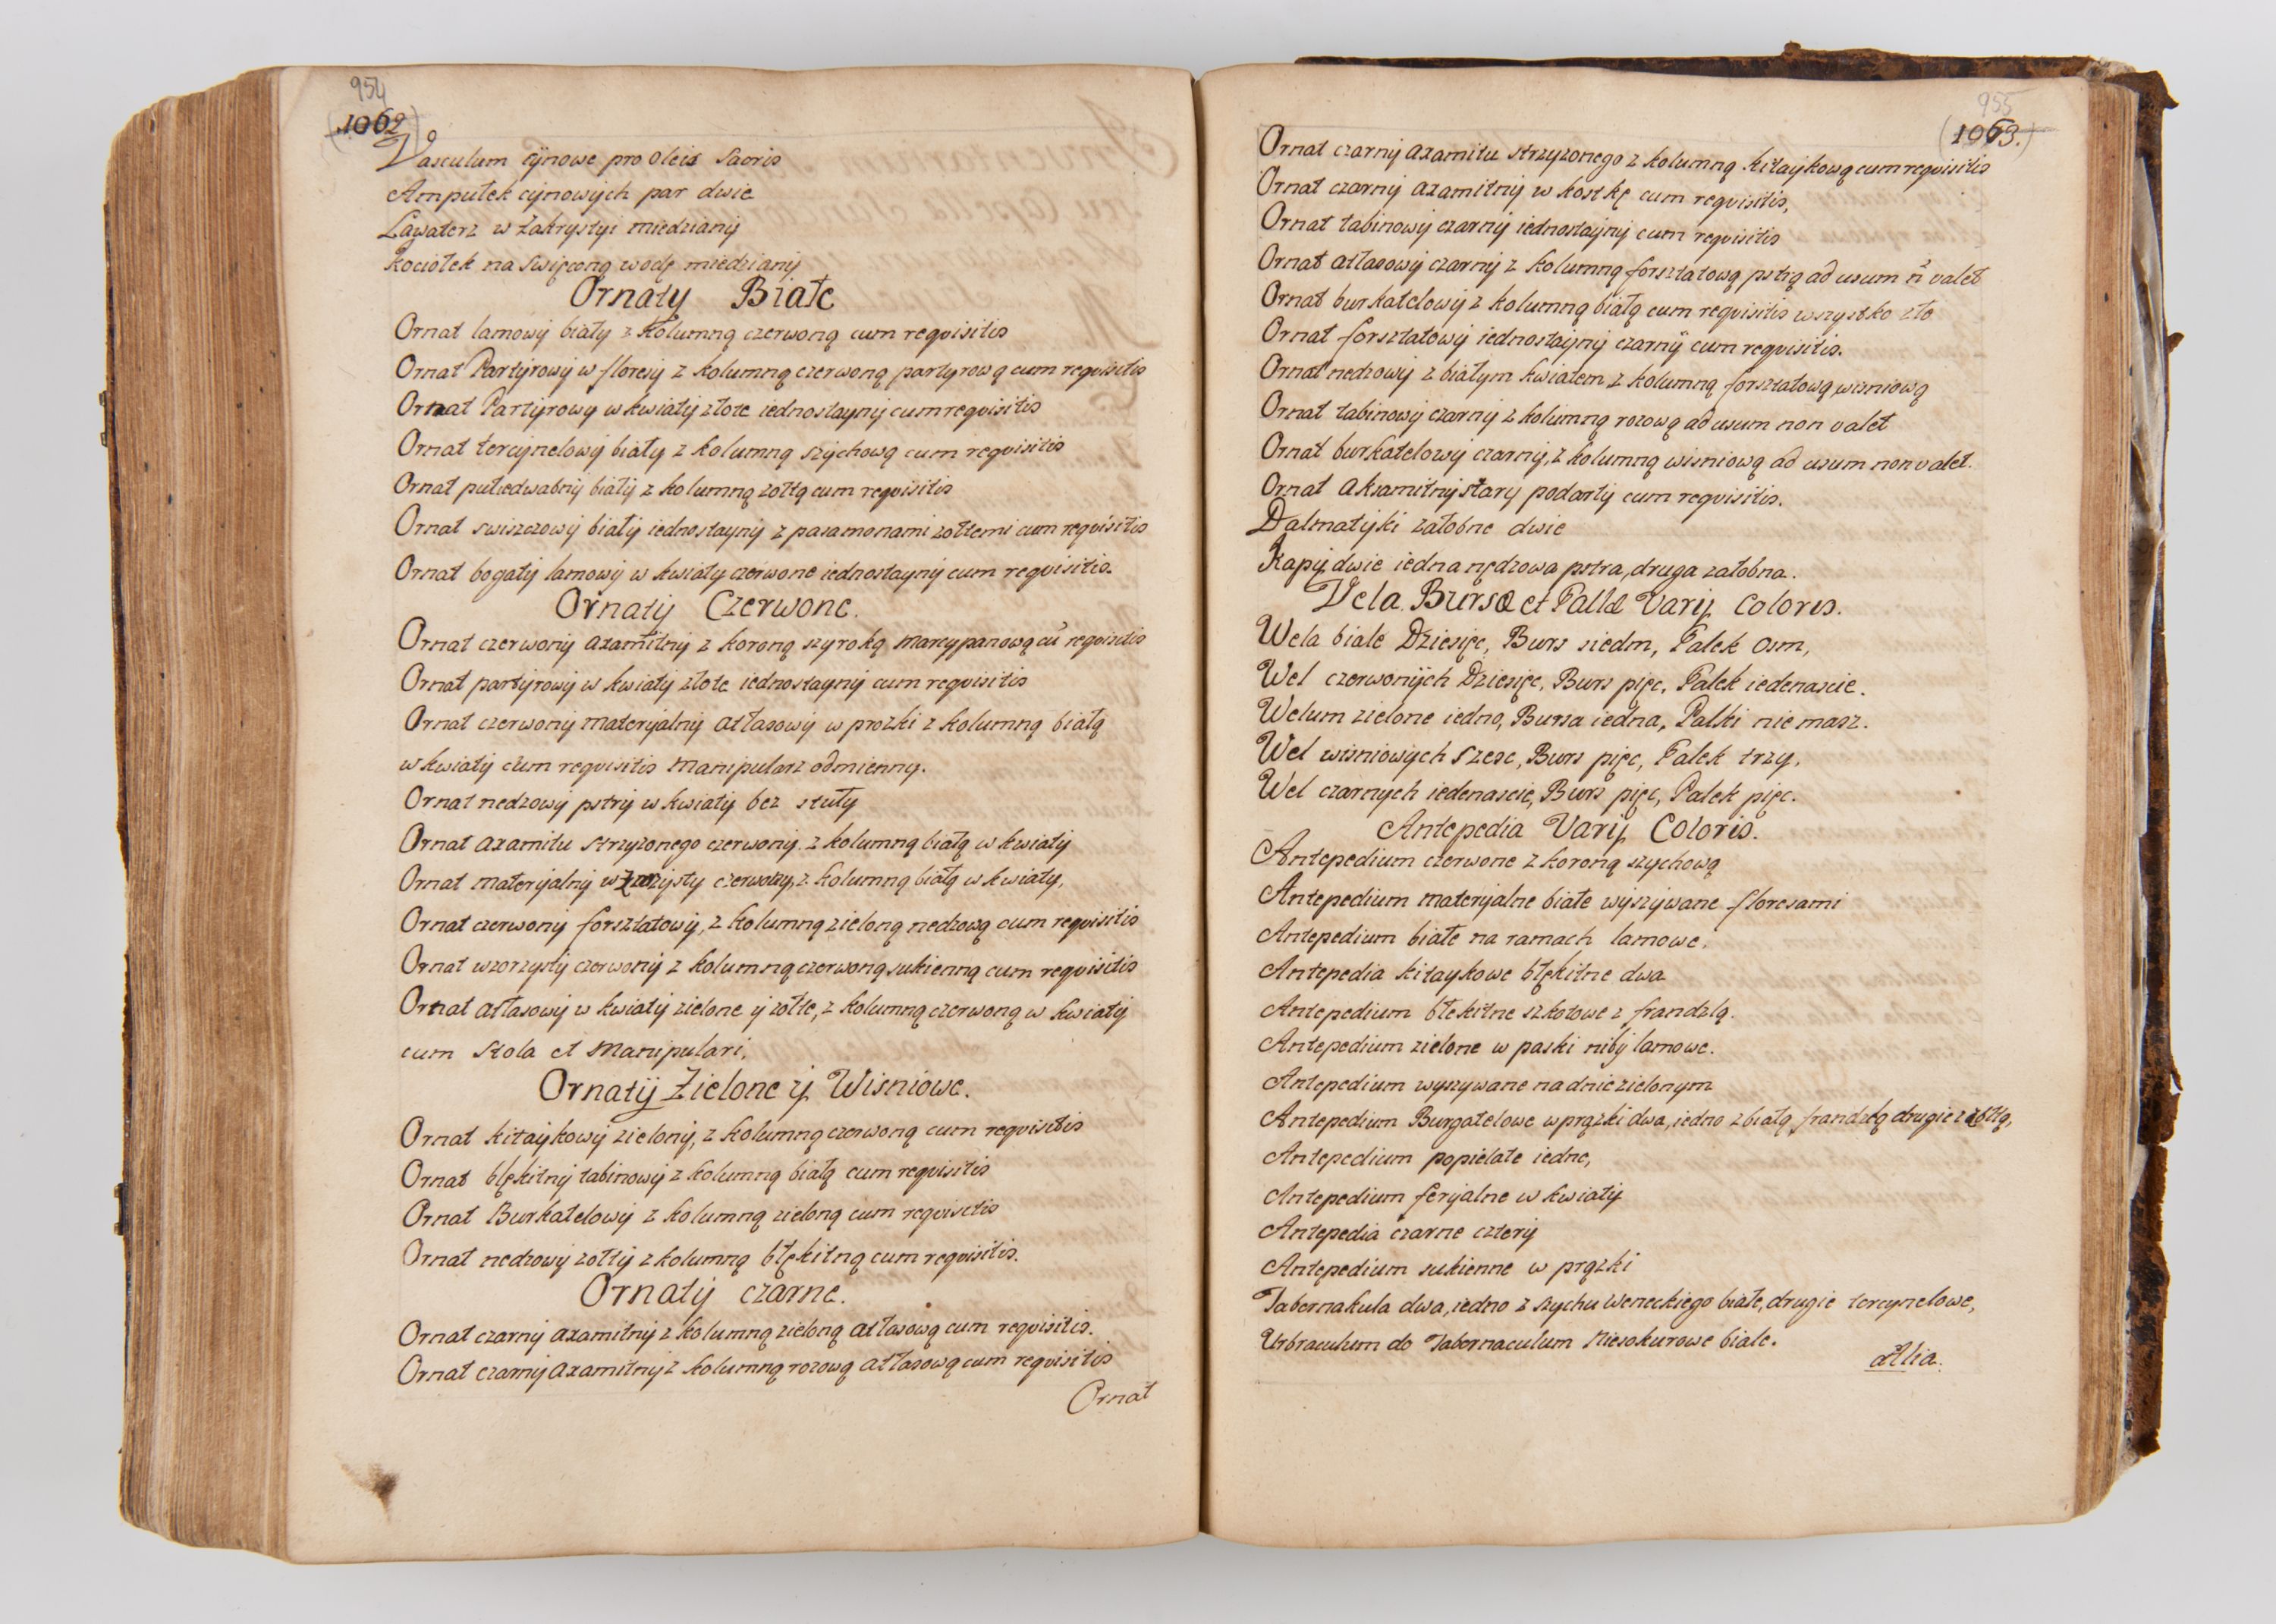 954
1062
Vasculum cynowe pro Oleis Sacris
Ampułek cynowych par dwie
Lawaterz w Zakrystyi miedziany
kociołek na swięconą wodę miedziany
Ornaty Białe
Ornat lamowy biały z kolumną czerwoną cum requisitis
Ornat Partyrowy w floresy z kolumną czerwoną partyrową cum requisitis
Ornat Partyrowy w kwiaty złote iednostayny cum requisitis
Ornat tercynelowy biały z kolumną szychową cum requisitis
Ornat pułiedwabny biały z kolumną zołtą cum requisitis
Ornat swiszczowy biały iednostayny z pasamonami zołtemi cum requisitis
Ornat bogaty lamowy w kwiaty czerwone iednostayny cum requisitis.
Ornaty Czerwone.
Ornat czerwony axamitny z koroną szyroką marcypanową cu requisitis
Ornat partyrowy w kwiaty złote iednostayny cum requisitis
Ornat czerwony materyalny atłasowy w prozki z kolumną białą
w kwiaty cum requisitis manipularz odmienny.
Ornat nedzowy pstry w kwiaty bez stuły
Ornat axamitu strzyzonego czerwony z kolumną białą w kwiaty
Ornat materyalny wzorzysty czerwony, z kolumną białą w kwiaty,
Ornat czerwony forsztatowy, z kolumną zieloną nedzową cum requisitis
Ornat wzorzysty czerwony z kolumną czerwoną sukienną cum requisitis
Ornat atłasowy w kwiaty zielone y zołte, z kolumną czerwoną w kwiaty
cum Stola et Manipulari,
Ornaty Zielone y Wisniowe.
Ornat kitaykowy zielony, z kolumną czerwoną cum requisitis
Ornat błękitny tabinowy z kolumną białą cum requisitis
Ornat Burkatelowy z kolumną zieloną cum requisitis
Ornat nedzowy zołty z kolumną błękitną cum requisitis.
Ornaty czarne.
Ornat czarny axamitny z kolumną zieloną atłasową cum requisitis.
Ornat czarny axamitny z kolumną rozową atłasową cum requisitis
Ornat
955
1063.
Ornat czarny axamitu strzyzonego z kolumną kitaykową cum requisitis
Ornat czarny axamitny w kostkę cum requisitis,
Ornat tabinowy czarny iednostayny cum requisitis
Ornat atłasowy czarny z kolumną forsztatową pstrą ad usum n valet
Ornat burkatelowy z kolumną białą cum requisitis wszystko złe
Ornat forsztatowy iednostayny czarny cum requisitis.
Ornat nedzowy z białym kwiatem z kolumną forsztatową wisniową
Ornat tabinowy czarny z kolumną rozową ad usum non valet
Ornat burkatelowy czarny, z kolumną wisniową ad usum non valet.
Ornat aksamitny stary podarty cum requisitis.
Dalmatyki załobne dwie
Kapy dwie iedna nędzowa pstra, druga załobna.
Vela Bursæ et Pallæ Varij Coloris.
Wela biale Dziesięc, Burs siedm, Palek osm,
Wel czerwonych Dziesięc, Burs pięc, Palek iedenascie.
Welum zielone iedno, Bursa iedna, Palki nie masz.
Wel wisniowych szesc, Burs pięc, Palek trzy,
Wel czarnych iedenascie, Burs pięc, Palek pięc.
Antepedia Varij Coloris.
Antepedium czerwone z koroną szychową
Antepedium materyalne białe wyszywane floresami
Antepedium białe na ramach lamowe.
Antepedia kitaykowe błękitne dwa
Antepedium błekitne szkotowe z frandzlą.
Antepedium zielone w paski niby lamowe.
Antepedium wyszywane na dnie zielonym
Antepedium Burgatelowe w prązki dwa, iedno z białą frandzlą drugie z zołtą,
Antepedium popielate iedne,
Antepedium feryalne w kwiaty
Antepedia czarne cztery
Antepedium sukienne w prązki
Tabernakula dwa, iedno z szychu weneckiego białe, drugie tercynelowe,
Urbraculum do Tabernaculum Miesokurowe biale.
Alia.